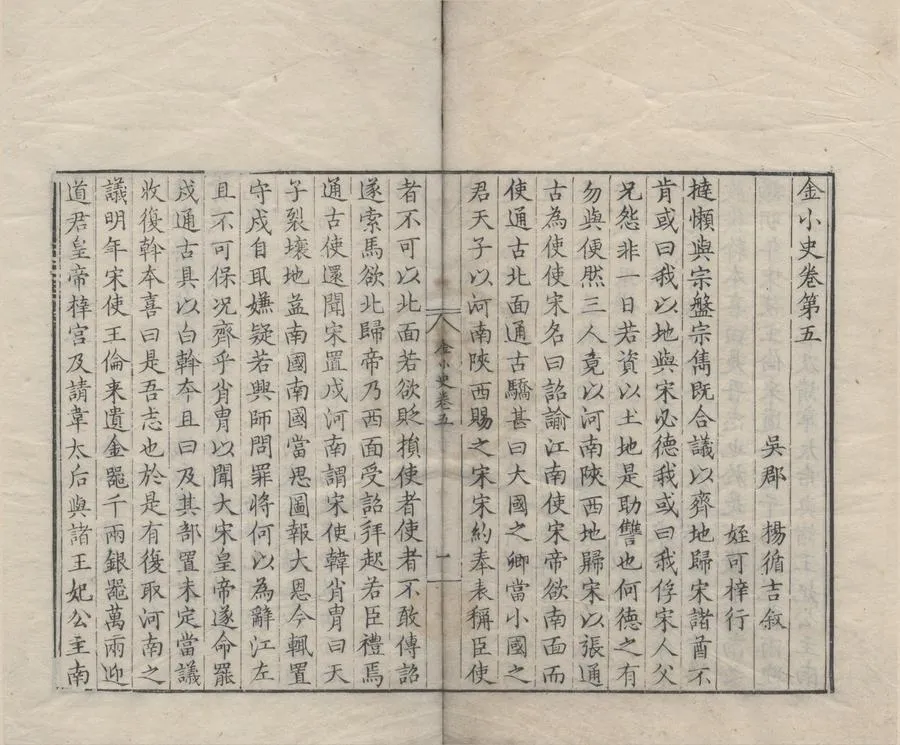 金小史卷第五
吳郡 楊循吉叙
姪可梓行
撻懶與宗盤宗雋既合議以齊地歸宋諸酋不
肯或曰我以地與宋必德我或曰我俘宋人父
兄怨非一日若資以土地是助讐也何德之有
勿與便然三人竟以河南陝西地歸宋以張通
古為使使宋名曰詔諭江南使宋帝欲南面而
使通古北面通古驕甚曰大國之卿當小國之
君天子以河南陝西賜之宋宋約奉表稱臣使
金小史卷五
一
者不可以北面若欲貶損使者使者不敢傳詔
遂索馬欲北歸帝乃西面受詔拜起若臣禮焉
通古使還聞宋置戍河南謂宋使韓肖胄曰天
子裂壤地益南國南國當思圖報大恩今輒置
守戍自取嫌疑若興師問罪將何以為辭江左
且不可保况齊乎肖胄以聞大宋皇帝遂命罷
戍通古具以白斡夲且曰及其部置未定當議
收復斡夲喜曰是吾志也於是有復取河南之
議明年宋使王倫来遺金噐千兩銀噐萬兩迎
道君皇帝梓宫及請韋太后與諸王妃公主南